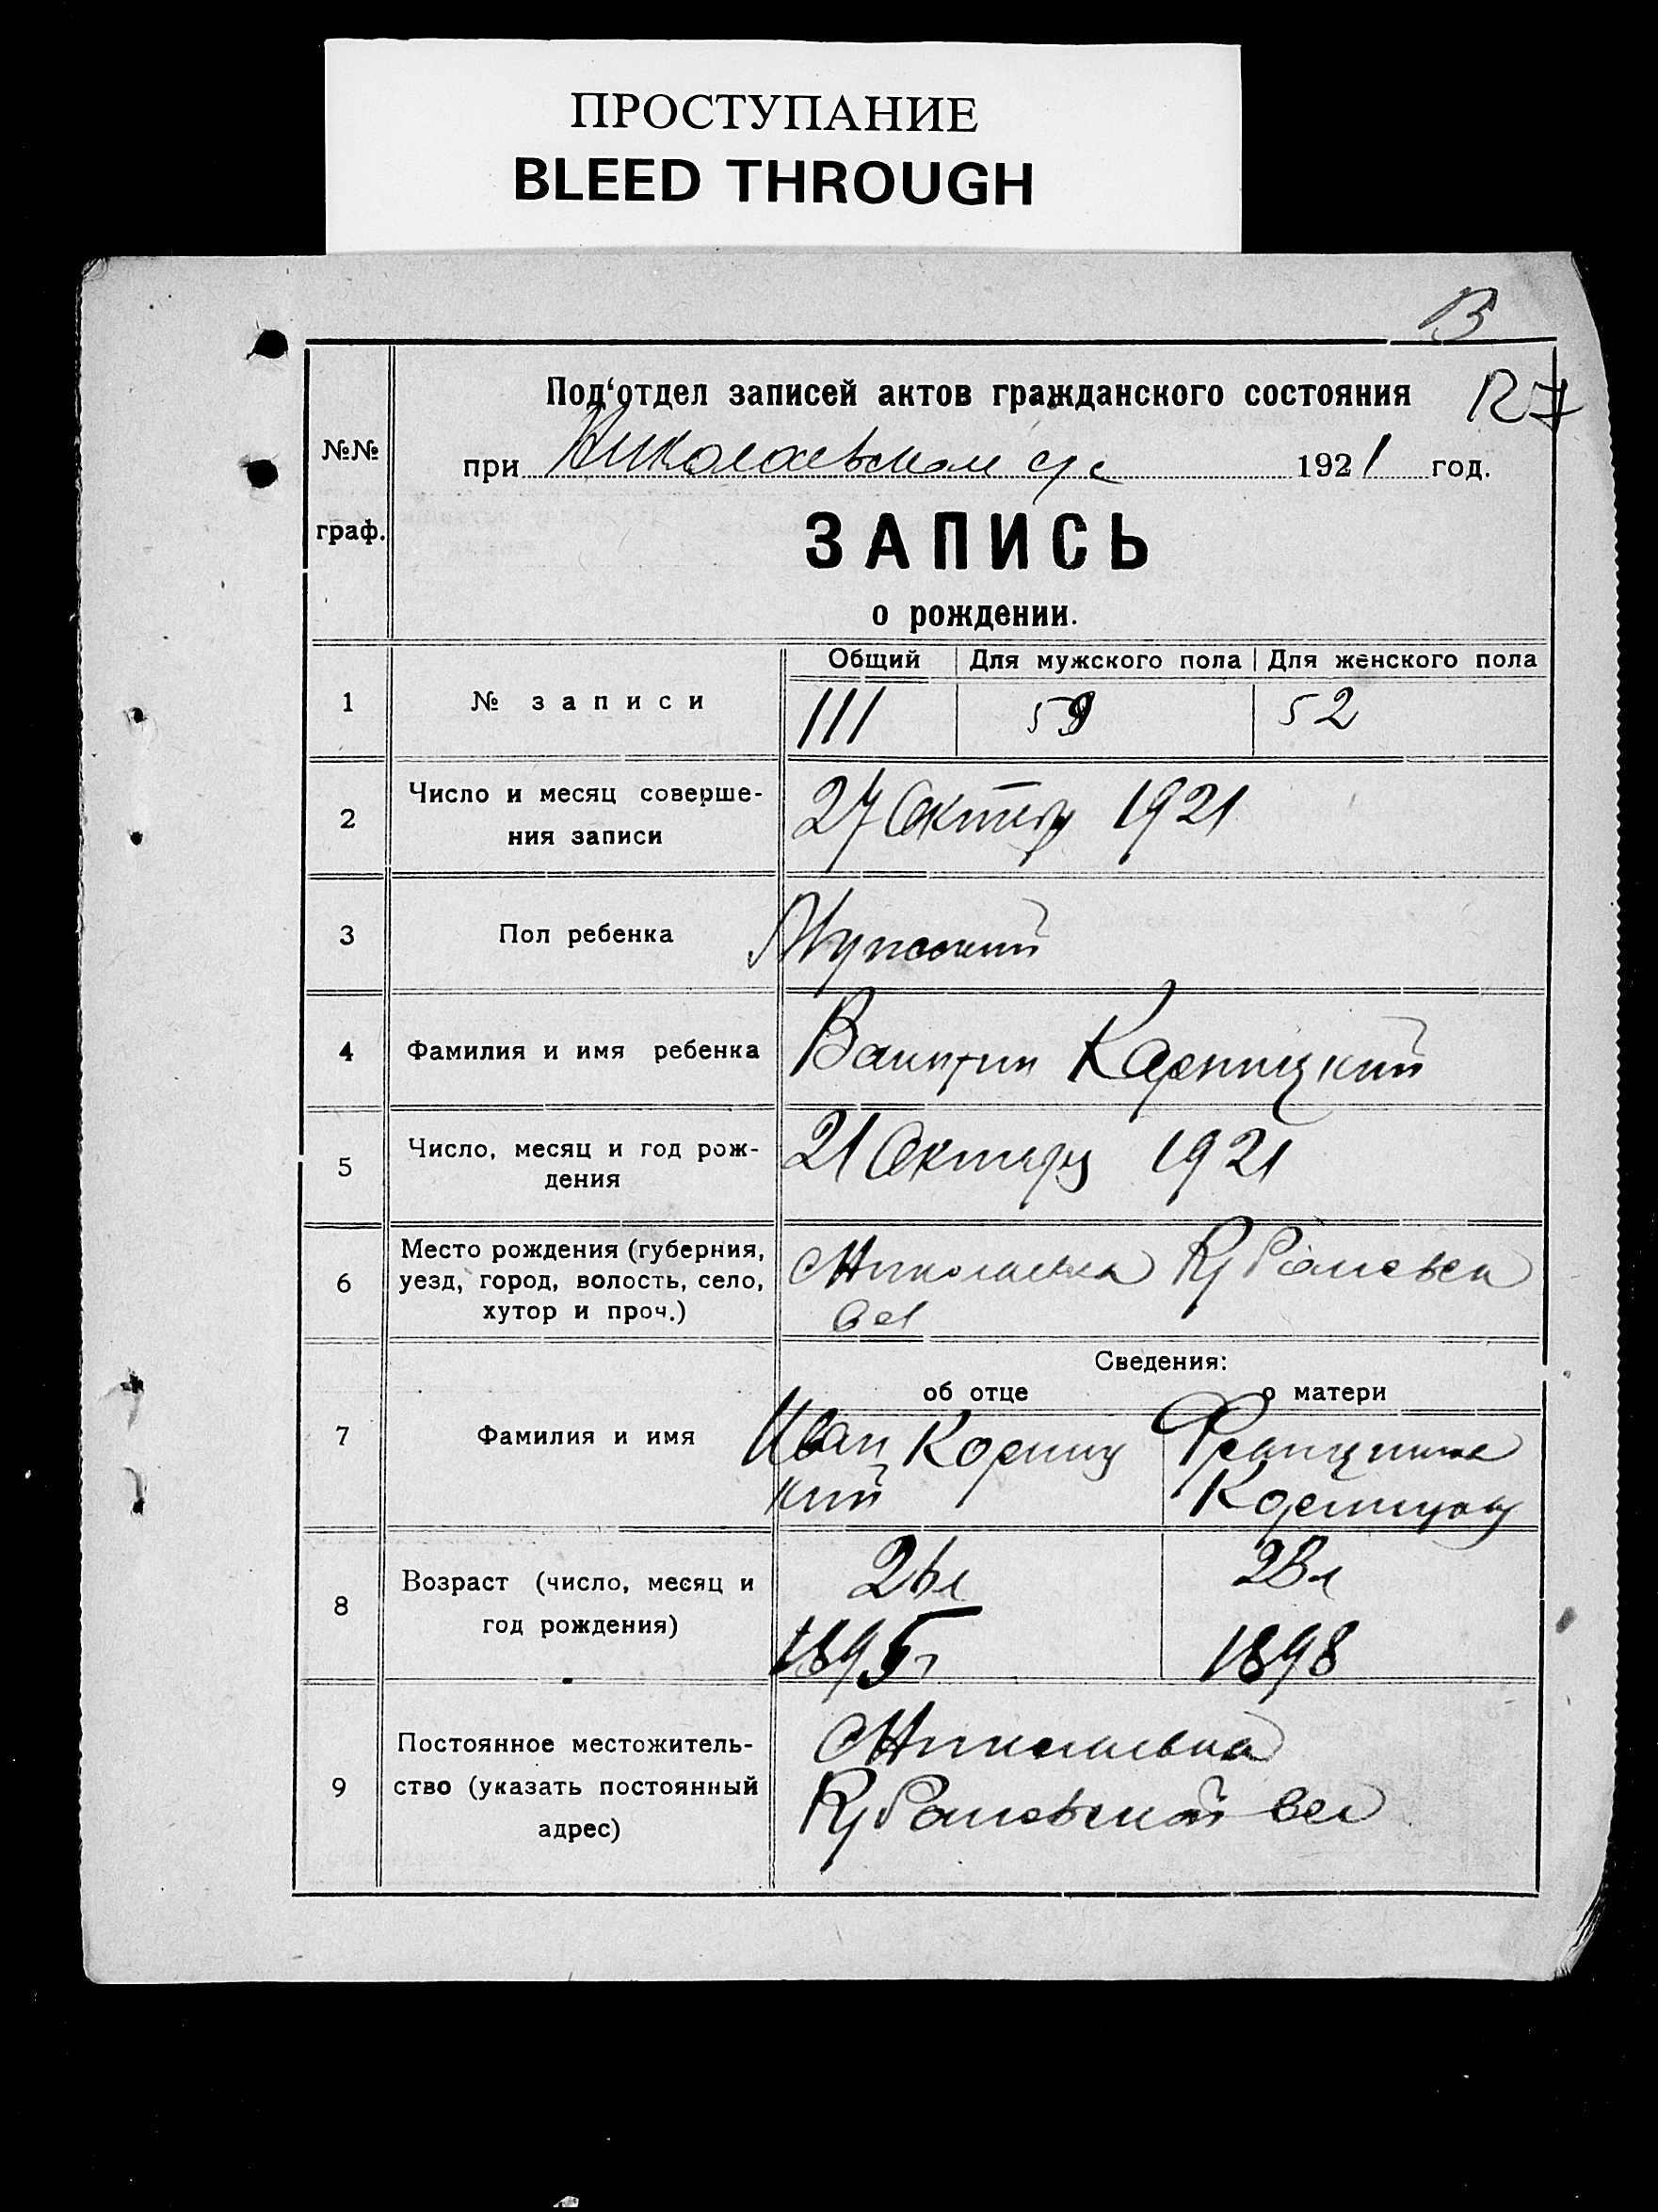 ПРОСТУПАНИЕ
BLEED THROUGH
В
127
Под‘отдел записей актов гражданского состояния
№№ граф.
при Николаевском с/с 1921 год.
ЗАПИСЬ
о рождении.
Общий Для мужского пола Для женского пола
1 № записи 111 59 52
2 Число и месяц соверше-
ния записи 27 Октяр 1921
3 Пол ребенка Мужский
4 Фамилия и имя ребенка Карницкий
5 Число, месяц и год рож-
дения 21 Октяря 1921
6 Место рождения (губерния,
уезд, город, волость, село,
хутор и проч.) Николаевка
Вол
Сведения:
об отце о матери
7 Фамилия и имя Иван Корниц
кий
8 Возраст (число, месяц и
год рождения) 26л 23л
1895г 1898
9 Постоянное местожитель-
ство (указать постоянный
адрес) Николаевка
вол